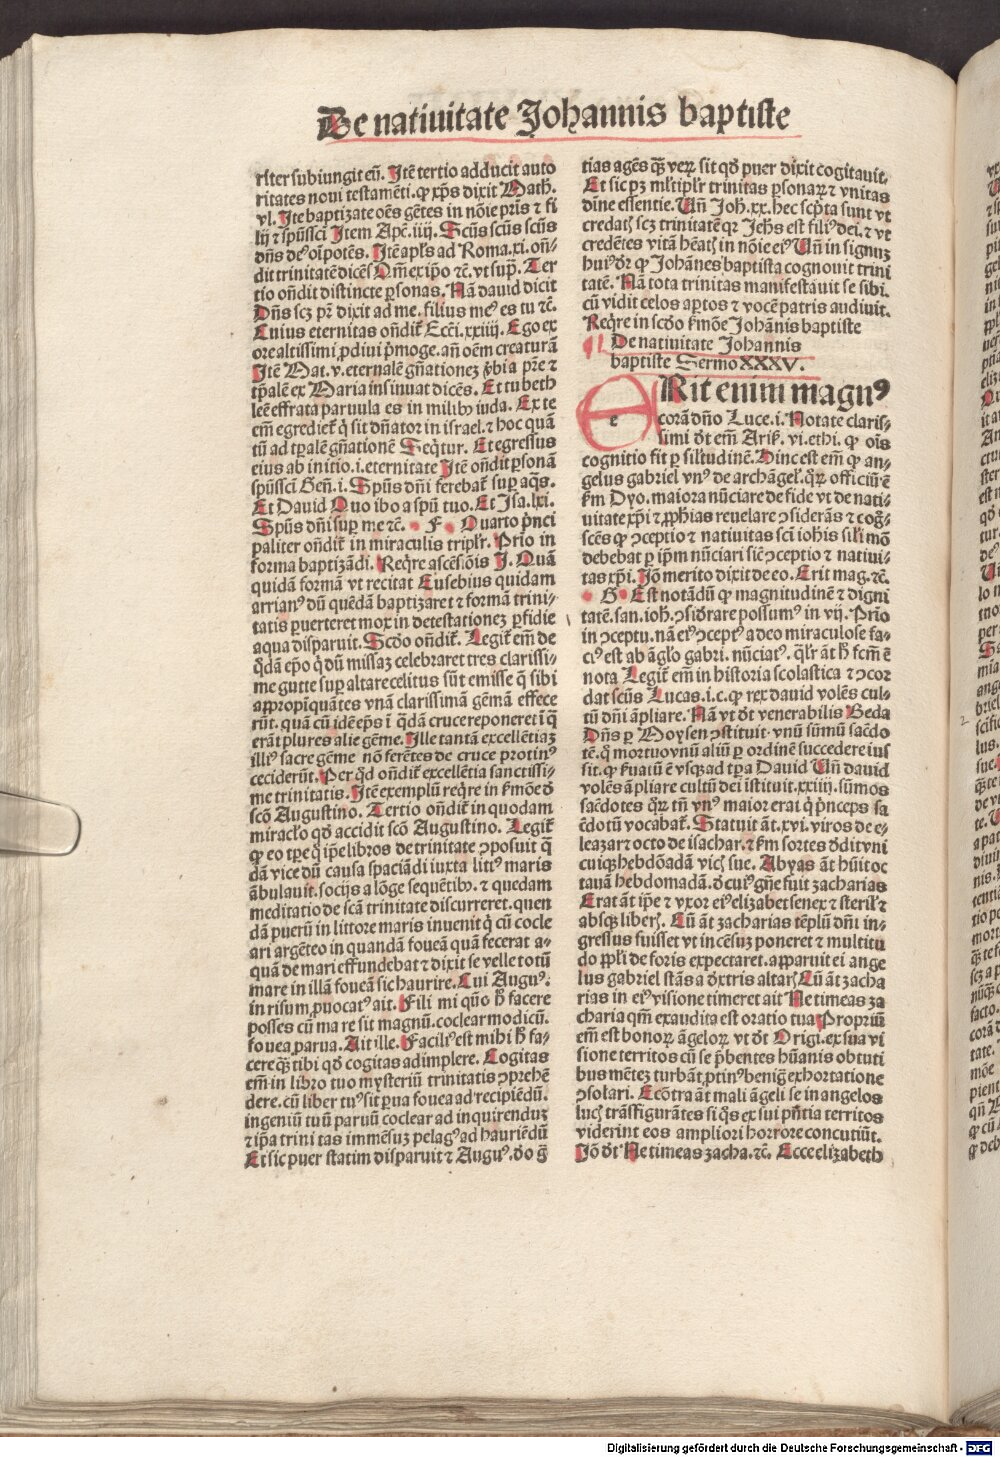 De natiuitate Johannis baptiste
rſter ſubiungit eū. Itē tertio adducit auto
ritates noui teſtamēti. ꝙ xp̄s dixit Math̄.
vl. Itē baptizate oēs gētes in nōie pr̄is ⁊ fi
lij ⁊ ſpūſſci Item Apē. iiij. Scūs ſcūs ſcūs
dn̄s deꝰ oīpotēs. Itē apl̄s ad Roma. xi. oñ⸗
dit trinitatē dicēſ Qm̄ ex ip̄o ⁊c̄. vt ſup̄. Ter
tio oñdit diſtincte ꝑſonas. Nā dauid dicit
Dn̄s ſcꝫ pr̄ dixit ad me. filius meꝰ es tu ⁊c̄.
Cuius eternitas oñdit᷑ Ecci. xxiiij. Ego ex
ore altiſſimi ꝓdiui p̄moge. añ oēm creaturā
Itē Mat. v. eternalē gn̄ationeꝫ ꝟbi a pr̄e ⁊
tꝑalē ex Maria inſinuat dicēs. Et tu beth
leē effrata paruula es in milibꝫ iuda. Ex te
em̄ egrediet᷑ q̇ ſit dn̄ator in iſrael. ⁊ hoc quā
tū ad tꝑalē gn̄ationē Seq̄tur. Et egreſſus
eius ab initio. i. eternitate Itē oñdit ꝑſonā
ſpūſſci Geñ. i. Spūs dn̄i ferebat᷑ ſuꝑ aq̄s.
Et Dauid Quo ibo a ſpū tuo. Et Iſa. lxi.
Spūs dn̄i ſuꝑ me ⁊c̄. F Quarto p̄nci
paliter oñdit᷑ in miraculis triplr̄. Prīo in
forma baptizādi. Req̄re aſcēſiōis J. Quā
quidā formā vt recitat Euſebius quidam
arrianꝰ dū quēdā baptizaret ⁊ formā trini⸗
tatis ꝑuerteret mox in deteſtationeꝫ ꝑfidie
aqua diſparuit. Scd̄o oñdit᷑. Legit᷑ em̄ de
q̇dā ep̄o q̇ dū miſſaꝫ celebraret tres clariſſi⸗
me gutte ſuꝑ altare celitus ſūt emiſſe q̄ ſibi
appropīquātes vnā clariſſimā gēmā effece
rūt. quā cū idē ep̄s ī q̇dā cruce reponeret ī q̄
erāt plures alie gēme. Ille tantā excellētiaꝫ
illiꝰ ſacre gēme nō ferētes de cruce protinꝰ
ceciderūt. Per qd̄ oñdit᷑ excellētia ſanctiſſi⸗
me trinitatis. Itē exemplū reqr̄e in ẜmōe d̄
ſcō Auguſtino. Tertio oñdit᷑ in quodam
miracło qd̄ accidit ſcō Auguſtino. Legit᷑
ꝙ eo tp̄e q̄ ip̄e libros de trinitate ꝯpoſuit q̇
dā vice dū cauſa ſpaciādi iuxta litꝰ maris
ābulauit. ſocijs a lōge ſequētibꝫ. ⁊ quedam
meditatio de ſcā trinitate diſcurreret. quen
dā puerū in littore maris inuenit q̇ cū cocle
ari argēteo in quandā foueā quā fecerat a⸗
quā de mari effundebat ⁊ dixit ſe velle totū
mare in illā foueā ſic haurire. Cui Auguꝰ:
in riſum ꝓuocatꝰ ait. Fili mi qn̄o h̄ facere
poſſes cū mare ſit magnū. coclear modicū.
fouea parua. Ait ille. Faciliꝰ eſt mihi h̄ fa⸗
cere qꝫ tibi qd̄ cogitas adimplere. Cogitas
em̄ in libro tuo myſteriū trinitatis ꝯprehē
dere. cū liber tuꝰ ſit parua fouea ad recipiēdū.
ingeniū tuū paruū coclear ad inquirenduꝫ
⁊ ip̄a trinitas immēſuꝫ pelagꝰ ad hauriēdū
Et ſic puer ſtatim diſparuit ⁊ Auguꝰ. d̄o g̃
tias agēs qꝫ veꝝ ſit qd̄ puer dixit cogitauit.
Et ſic pꝫ ml̄tiplr̄ trinitas ꝑſonaꝝ ⁊ vnitas
dīne eſſentie. Uñ Joh̄. xx. hec ſcp̄ta ſunt vt
credatꝭ ſcꝫ trinitatē qꝛ Jeh̄s eſt filiꝰ dei. ⁊ vt
credētes vitā h̄eatꝭ in nōie eiꝰ Uñ in ſignuꝫ
huiꝰ d̄r ꝙ Johānes baptiſta cognouit trini
tatē. Nā tota trinitas manifeſtauit ſe ſibi.
cū vidit celos aꝑtos ⁊ vocē patris audiuit.
Req̄re in ſcd̄o ẜmōe Johānis baptiſte
De natiuitate Johannis
baptiſte Sermo XXXV.
e Rit enim magnꝰ
corā dn̄o Luce. i. Notate clariſ⸗
ſimi d̄t em̄ Ariſt᷑. vi. ethi. ꝙ oīs
cognitio fit ꝑ ſil̄itudinē. Hinc eſt em̄ ꝙ an⸗
gelus gabriel vnꝰ de archāgel᷑. qꝝ officiū ē
ẜm Dyo. maiora nūciare de fide vt de nati⸗
uitate xp̄i ⁊ ꝓph̄ias reuelare ꝯſiderās ⁊ cog̃⸗
ſcēs ꝙ ꝯceptio ⁊ natiuitas ſci ioh̄is ſil̄i mō
debebat ꝑ ip̄m nūciari ſic̄ ꝯceptio ⁊ natiui⸗
tas xp̄i. Jō merito dixit de eo. Erit mag. ⁊c̄.
G Eſt notādū ꝙ magnitudinē ⁊ digni
tatē. ſan. ioh̄. ꝯſid̄rare poſſumꝰ in vij. Prīo
in ꝯceptu. nā eiꝰ ꝯceptꝰ adeo miraculoſe fa⸗
ctꝰ eſt ab āglo gabri. nūciatꝰ. qlr̄ āt h̄ fcm̄ ē
nota Legit᷑ em̄ in hiſtoria ſcolaſtica ⁊ ꝯcor
dat ſcūs Lucas. i. c. ꝙ rex dauid volēs cul⸗
tū dn̄i āpliare. Nā vt d̄t venerabilis Beda
Dn̄s ꝑ Moyſen ꝯſtituit. vnū ſūmū ſacd̄o
tē. q̄ mortuo vnū aliū ꝑ ordinē ſuccedere iuſ
ſit. ꝙ ẜuatū ē vſqꝫ ad tꝑa Dauid Uñ dauid
volēs āpliare cultū dei īſtituit. xxiiij. ſūmos
ſacēdotes qꝝ tn̄ vnꝰ maior erat q̇ p̄nceps ſa
cēdotū vocabat᷑. Statuit āt. xvi. viros de e⸗
leazar ⁊ octo de iſachar. ⁊ ẜm ſortes d̄dit vni
cuiqꝫ hebdōadā vicꝭ ſue. Abyas āt h̄uit oc
tauā hebdomadā. d̄ cuiꝰ gn̄e fuit zacharias
Erat āt ip̄e ⁊ vxor eiꝰ elizabet ſenex ⁊ ſteril᷑ ⁊
abſqꝫ liberꝭ. Cū āt zacharias tēplū dn̄i in⸗
greſſus fuiſſet vt incēſuꝫ poneret ⁊ multitu
do ppl̄i de foris expectaret. apparuit ei ange
lus gabriel ſtās a dextris altarꝭ Cū āt zacha
rias in eiꝰ viſione timeret ait Ne timeas za
charia qm̄ exaudita eſt oratio tua Propriū
em̄ eſt bonoꝝ āgeloꝝ vt d̄t Origi. ex ſua vi
ſione territos cū ſe p̄bentes hūanis obtuti
bus mēteꝫ turbāt. ꝓtinꝰ benig̃ exhortatione
ꝯſolari. Ecōtra āt mali āgeli ſe in angelos
lucꝭ trāſfigurātes ſi q̄s ex ſui pn̄tia territos
viderint eos ampliori horrore concutiūt.
Jō d̄t. Ne timeas zacha. ⁊c̄. Ecce elizabeth
Digitalisierung gefördert durch die Deutsche Forschungsgemeinschaft - DFG